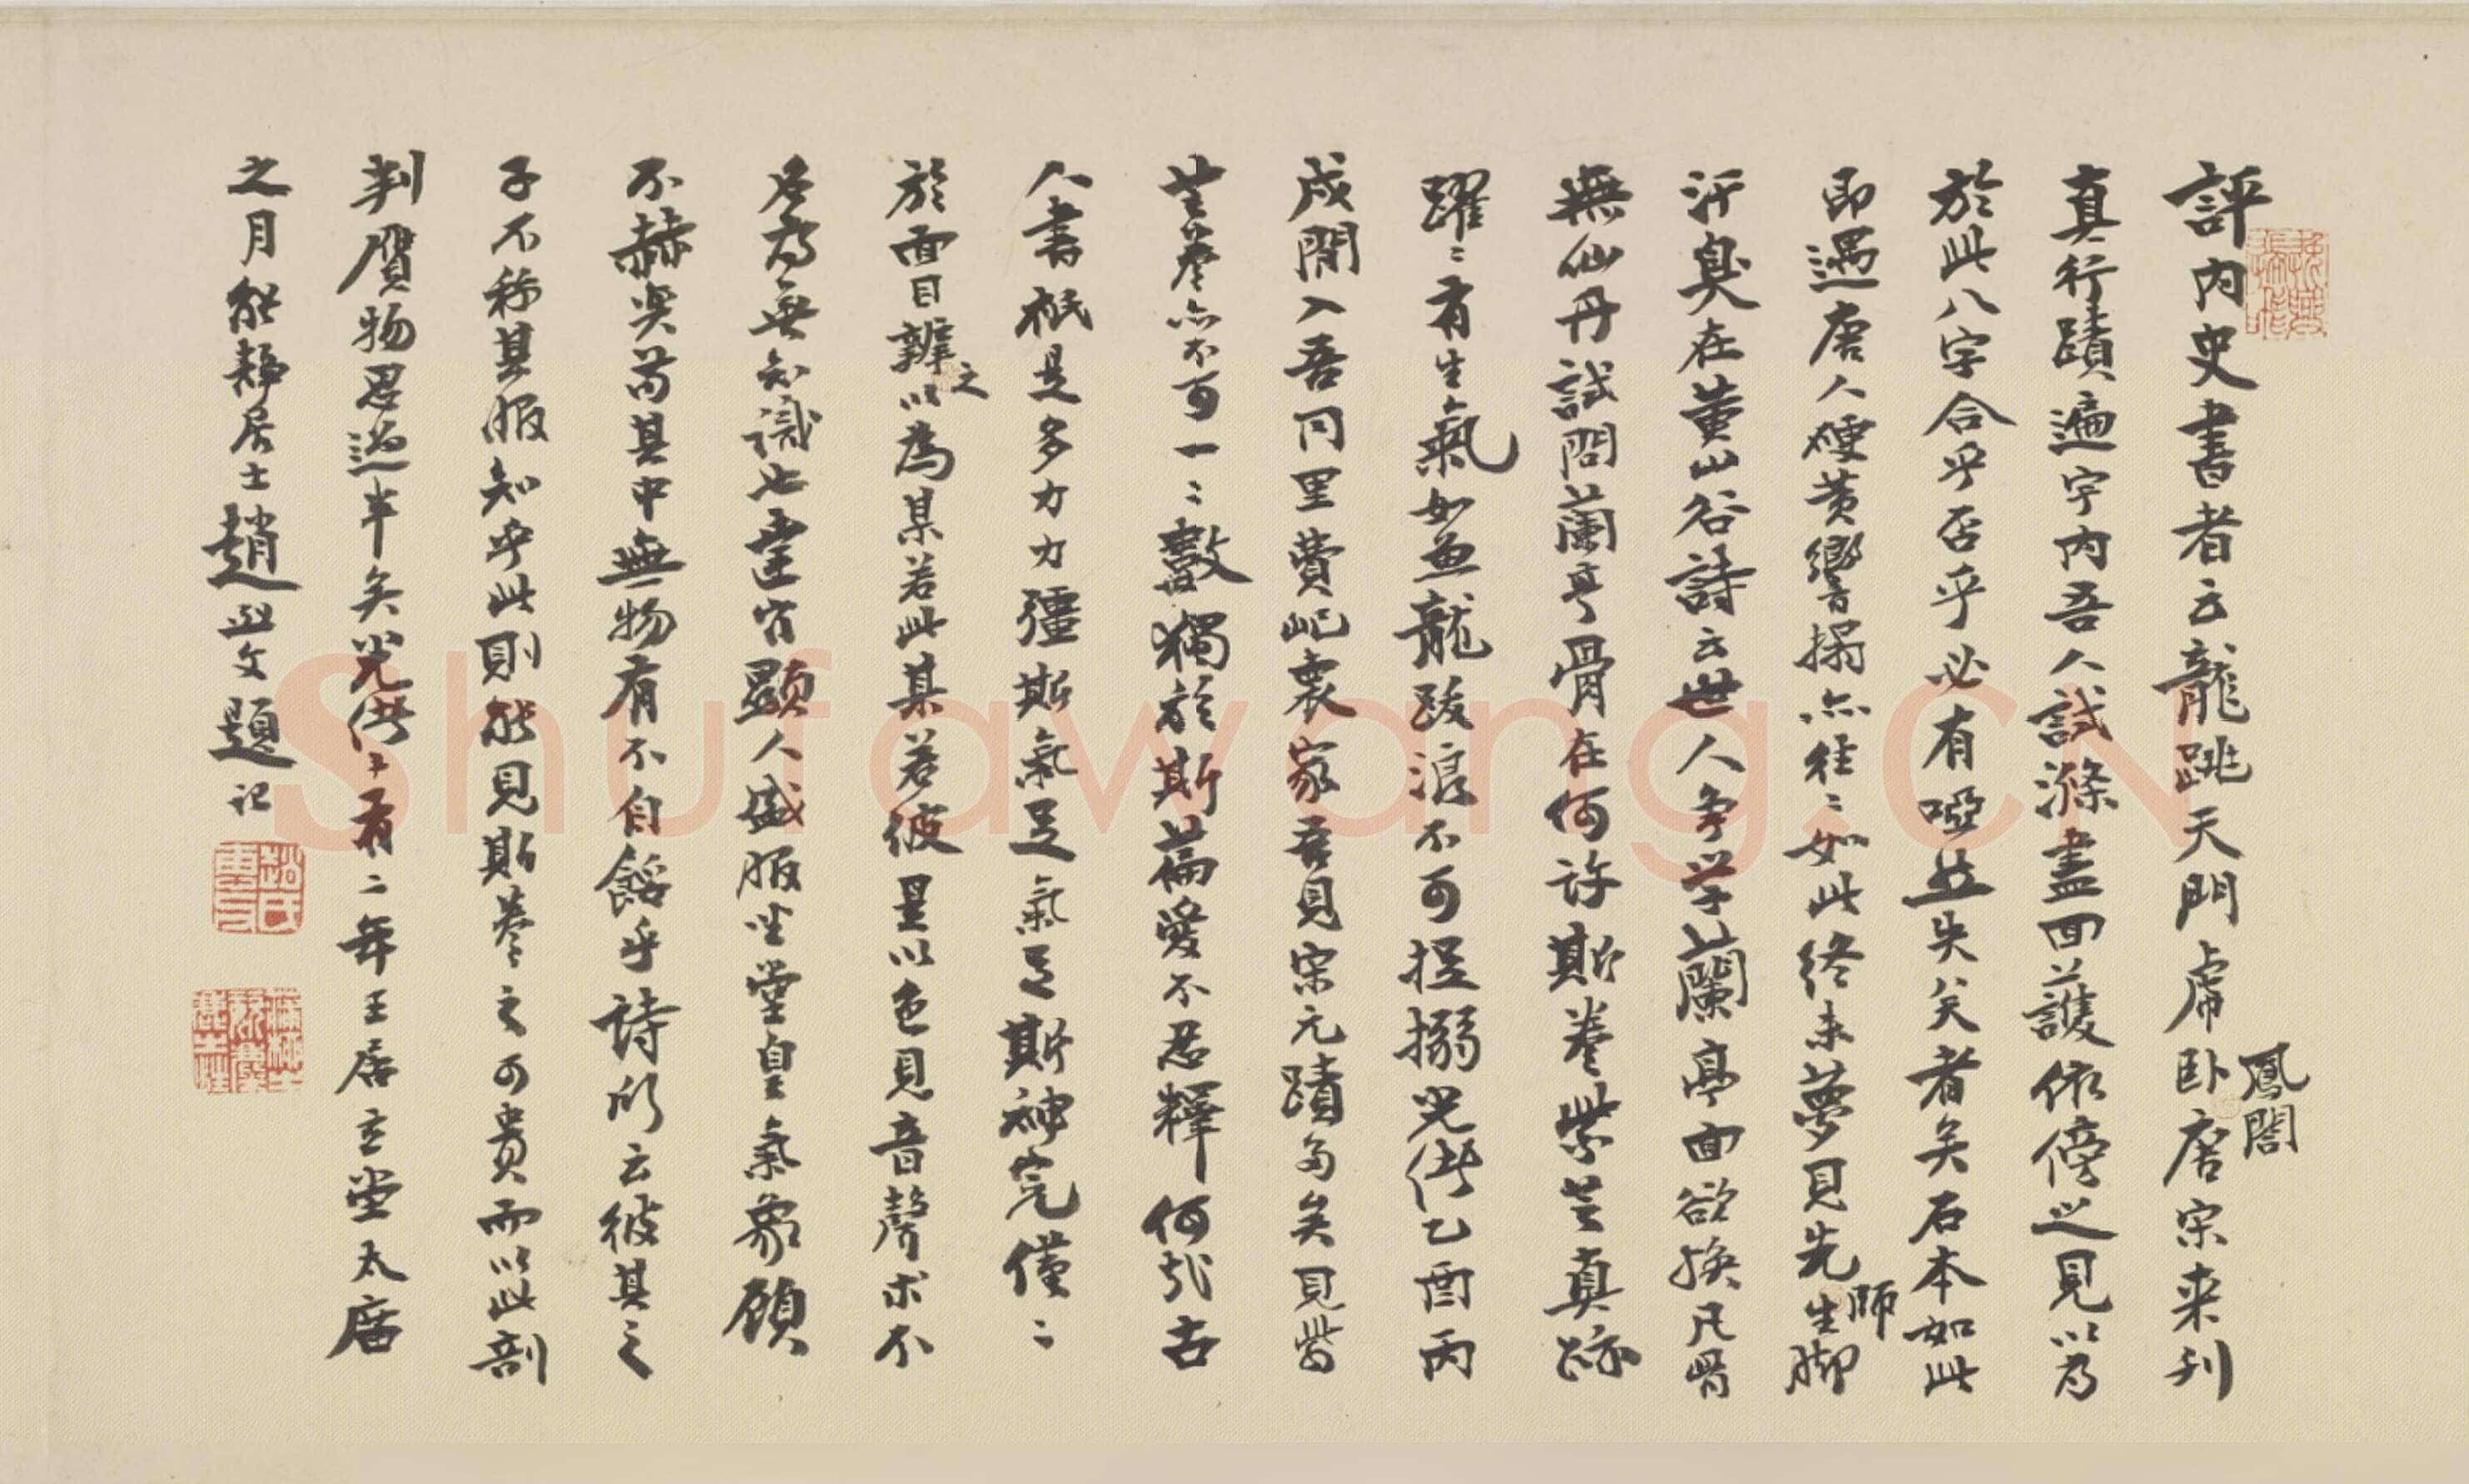 評內史書者云龍跳天門虎臥鳳閣唐宋來刊
真行蹟遍宇內吾人試滌盡回護依傍之見以為
於此八字合乎否乎必有啞然失笑者矣石本如此
即遇唐人硬黃響搨亦往往如此終未夢見先生師腳
汗臭在黃山谷詩云世人爭學蘭亭面欲換凡骨
無仙丹試問蘭亭骨在何許斯卷紫芝真跡
躍躍有生氣如魚龍跋浪不可捉搦光緒乙酉丙
戌間入吾同里費屺褱家吾見宋元蹟多矣見紫
芝卷亦不可一一數獨於斯篇愛不忍釋何哉古
人書祇是多力力彊斯氣足氣足斯神完僅僅
於面目辨之以為某若此某若彼是以色見音聲求不
名為無知識也達官顯人盛服坐堂皇氣象顧
不赫奕苟其中無物有不自餡乎詩所云彼其之
子不稱其服知乎此則能見斯卷之可貴而以此剖
判贋物思過半矣光緒十有二年王居玄堂太廟
之月能靜居士趙烈文題記
Shufawang.CN